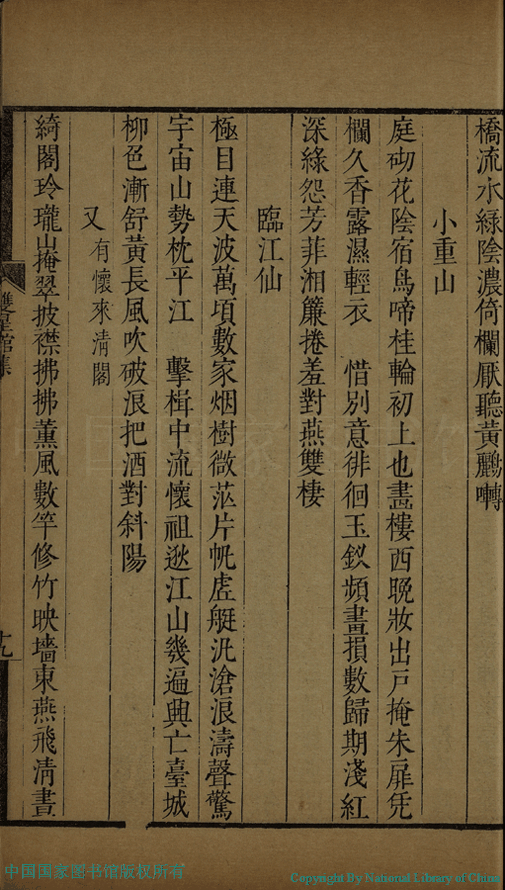 橋流水綠陰濃倚欄厭聽黃鸝囀
小重山
庭砌花陰宿鳥啼桂輪初上也畫樓西晚妝出戶掩朱扉凭
欄久香露濕輕衣　惜別意徘徊玉釵頻畫損數歸期淺紅
深綠怨芳菲湘簾捲羞對燕雙棲
臨江仙
極目連天波萬頃數家烟樹微茫片帆虗艇汎滄浪濤聲驚
宇宙山勢枕平江　擊楫中流懷祖逖江山幾遍興亡臺城
柳色漸舒黃長風吹破浪把酒對斜陽
又有懷來清閣
綺閣玲瓏山掩翠披襟拂拂薰風數竿修竹映墻東燕飛清晝
雙星館集
十九
中国国家图书馆版权所有
Copyright By National Library of China